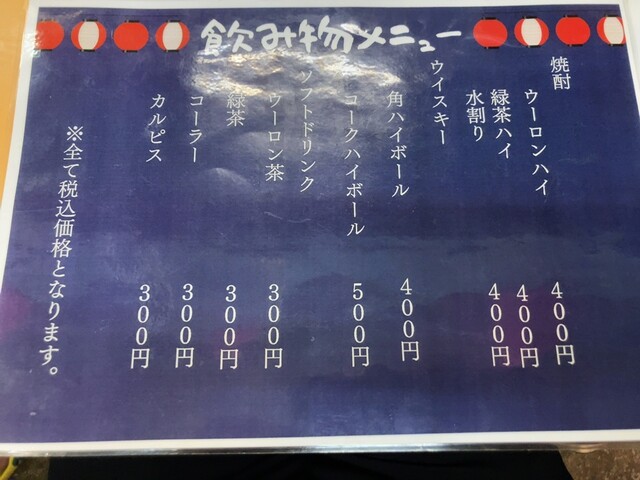 飲み物メニュー
焼酎
ウーロンハイ 400円
緑茶ハイ 400円
水割り 400円
ウイスキー
角ハイボール 400円
コークハイボール 500円
ソフトドリンク
ウーロン茶 300円
緑茶 300円
コーラー 300円
カルピス 300円
※全て税込価格となります。